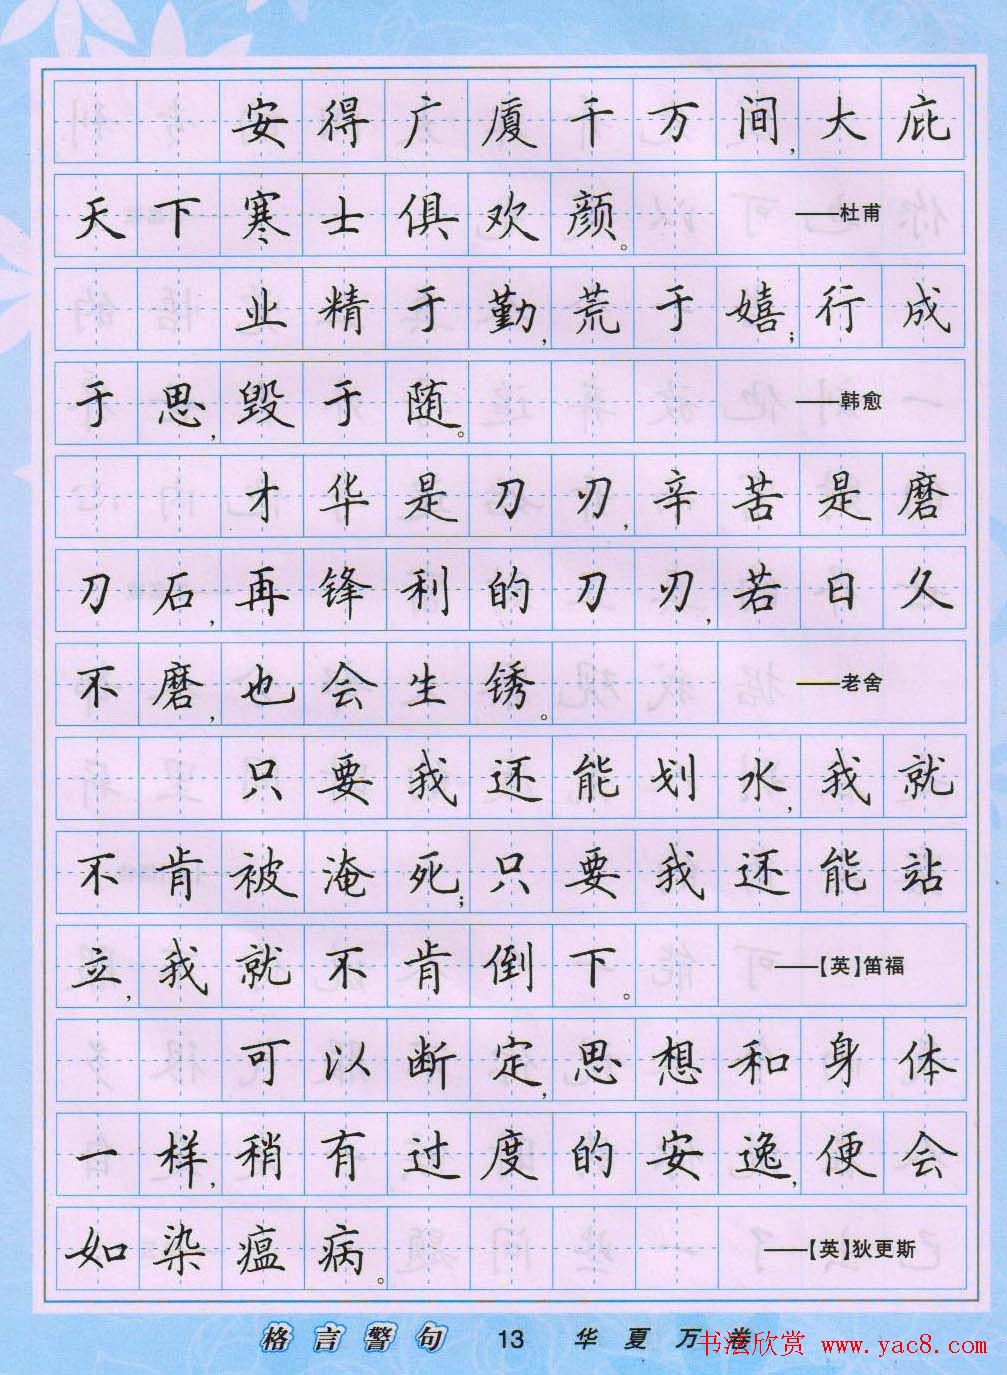 安得广厦千万间,大庇
天下寒士俱欢颜。 ——杜甫
业精于勤,荒于嬉;行成
于思,毁于随。 ——韩愈
才华是刀刃,辛苦是磨
刀石,再锋利的刀刃,若日久
不磨,也会生锈。 ——老舍
只要我还能划水,我就
不肯被淹死;只要我还能站
立,我就不肯倒下。 ——【英】笛福
可以断定,思想和身体
一样,稍有过度的安逸,便会
如染瘟病。 ——【英】狄更斯
格言警句 13 华夏万卷
书法欣赏 www.yac8.com